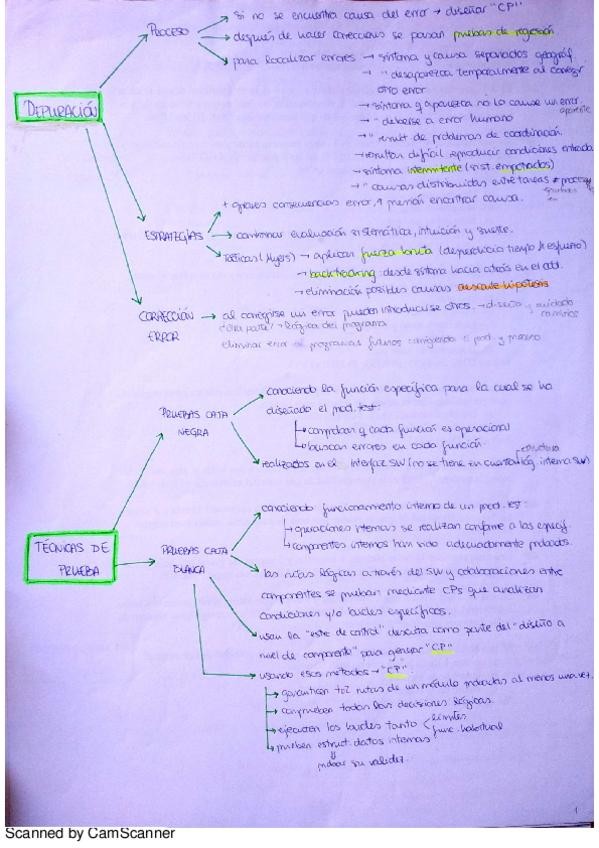 DEPURACIÓN
PROCESO
si no se encuentra causa del error → diseñar "CP"
después de hacer correcciones se pasan pruebas de regresión
para localizar errores → síntoma y causa separados geográf.
→ " desaparezca temporalmente al corregir
otro error
→ síntoma q aparezca no lo cause un error
aparente
→ " deberse a error humano
→ " result. de problemas de coordinación.
→ resultan difícil reproducir condiciones entrada
→ síntoma intermitente (sist. empotrados)
→ " causas distribuidas entre tareas
ESTRATEGIAS
+ graves consecuencias error, ↑ presión encontrar causa.
→ combinar evaluación sistemática, intuición y suerte.
Tácticas (Myers) → aplicar fuerza bruta (desperdicia tiempo y esfuerzo)
→ backtracking: desde síntoma hacia atrás en el cód.
→ eliminación posibles causas descarte hipótesis
CORRECCIÓN
ERROR
→ al corregirse un error pueden introducirse otros. → diseña y cuidado
cambios
otra parte? → lógica del programa
eliminar error al programas futuros corrigiendo el prod. y proceso
TÉCNICAS DE
PRUEBA
PRUEBAS CAJA
NEGRA
conociendo la función específica para la cual se ha
diseñado el prod. test:
comprueban q cada función es operacional
buscan errores en cada función.
realizados en el interface SW (no se tiene en cuenta lóg. interna SW)
estructura
PRUEBAS CAJA
BLANCA
conociendo funcionamiento interno de un prod. test:
operaciones internas se realizan conforme a las especif.
componentes internos han sido adecuadamente probados.
las rutas lógicas a través del SW y colaboraciones entre
componentes se prueban mediante CPs que analizan
condiciones y/o bucles específicos.
usan la "estr. de control" descrita como parte del "diseño a
nivel de componente" para generar "CP"
usando esos métodos → "CP":
→ garanticen tod rutas de un módulo probadas al menos una vez.
→ comprueben todas las decisiones lógicas.
→ ejecuten los bucles tanto límites
func. habitual
→ prueben estruct. datos internas
probar su validez.
1
Scanned by CamScanner